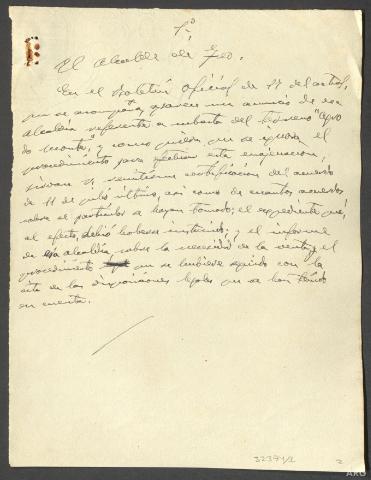 1º
El Alcalde de Feo.
En el Boletín Oficial de 17 del actual,
que se acompaña, aparece un anuncio de esa
alcaldía referente a subasta del terreno "Agro
do monte", y como quiera que se ignora el
procedimiento para realizar esta enajenacion,
sirvase V. remitirme certificacion del acuerdo
de 11 de julio último, asi como de cuantos acuerdos
sobre el particular se hayan tomado; el expediente que,
al efecto, debió haberse instruido; y el informe
de esa alcaldía sobre la necesidad de la venta y el
procedimiento que se hubiese seguido con la
cita de las disposiciones legales que se han tenido
en cuenta.
32374/1
2